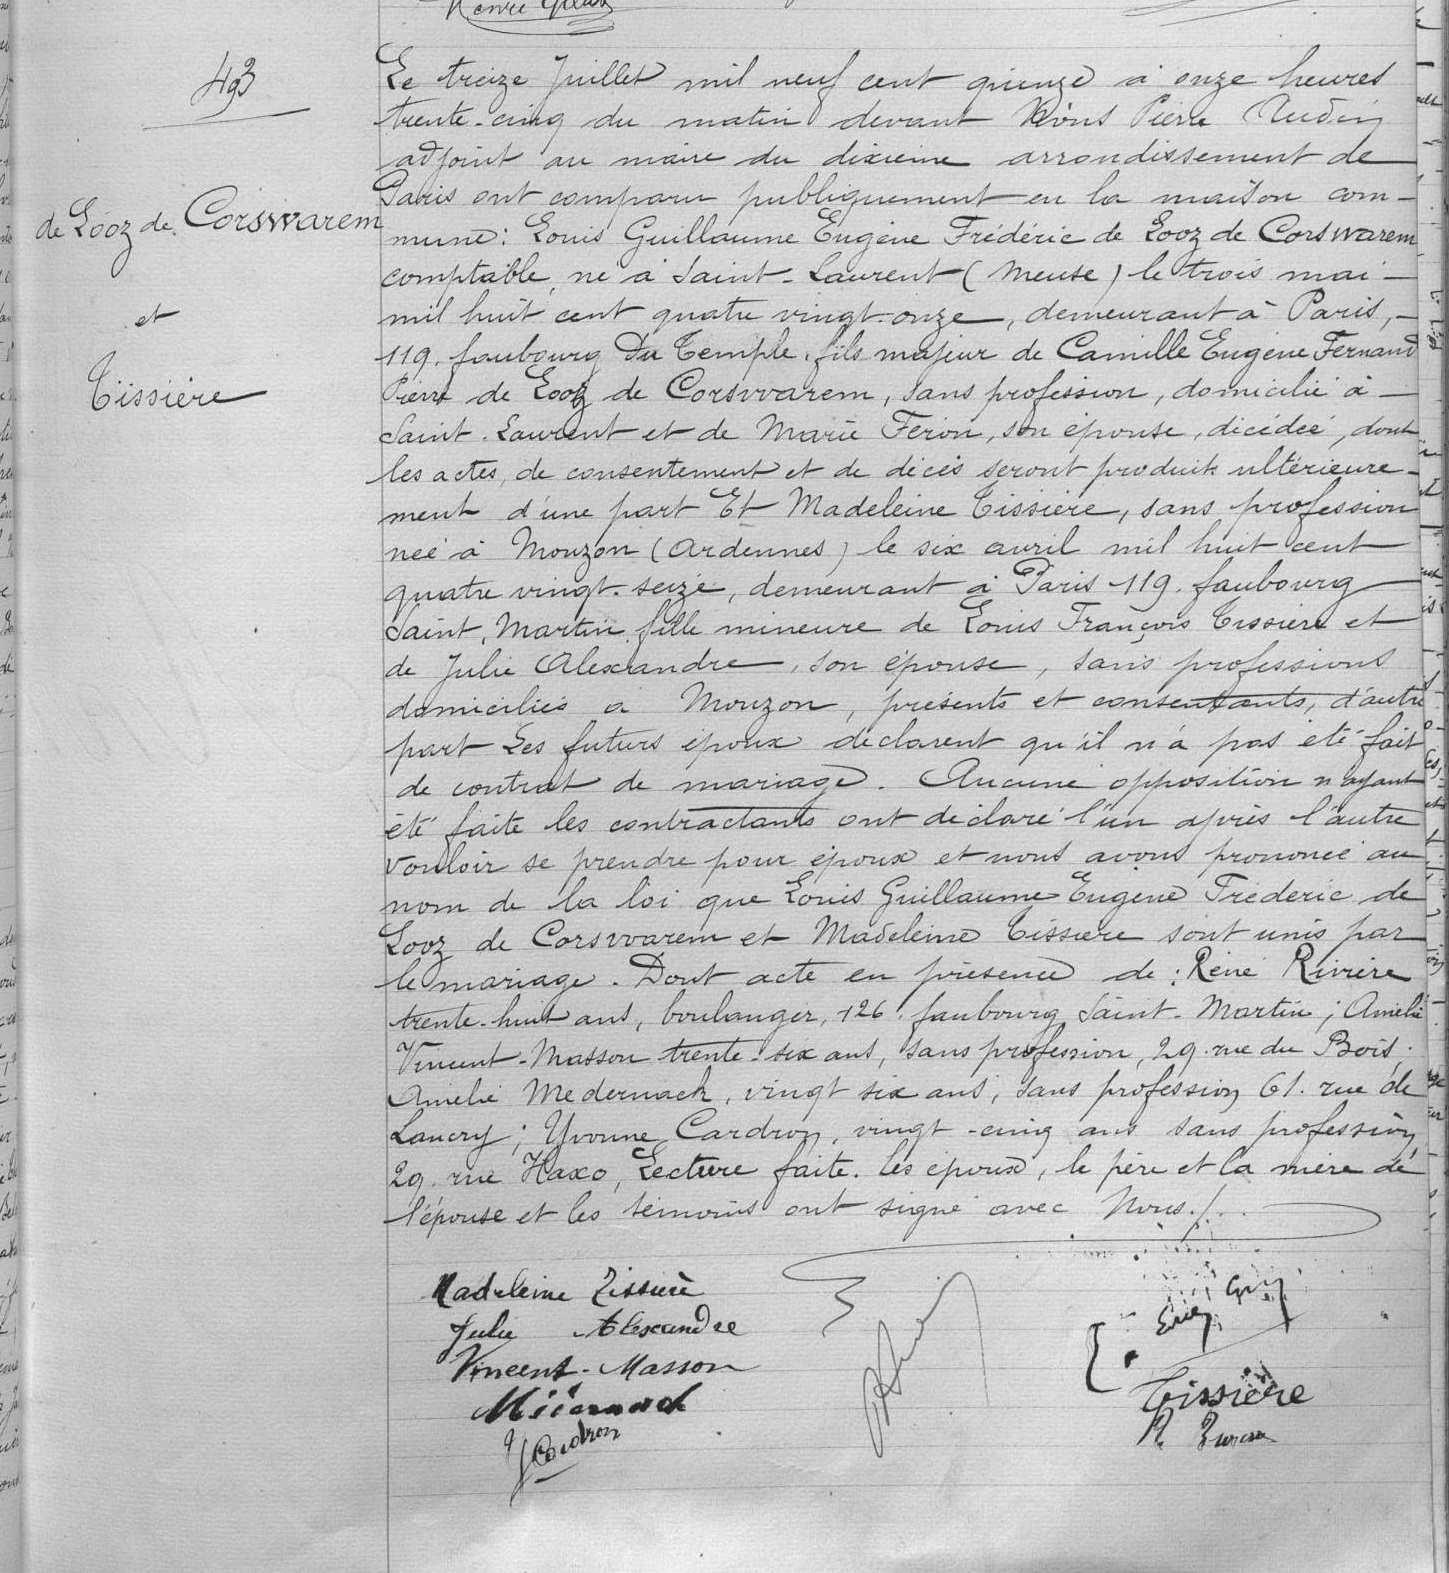 Henri
493
de Looz de Corswarem
et
Tissière
Le treize Juillet mil neuf cent quinze à onze heures
trente-cinq du matin devant Nous Pierre
adjoint au maire du dixième arrondissement de
Paris ont comparu publiquement en la maison com-
mune: Louis Guillaume Eugène Frédéric de Looz de Corswarem
comptable, né à Saint-Laurent (Meuse) le trois mai
mil huit cent quatre vingt-onze, demeurant à Paris,
119. faubourg du Temple, fils majeur de Camille Eugène Fernand
Pierre de Looz de Corswarem, sans profession, domicilié à
Saint-Laurent et de Marie Feron, son épouse, décédée, dont
les actes, de consentement et de décès seront produits ultérieure-
ment d'une part Et Madeleine Tissière, sans profession
née à Mouzon (Ardennes) le six avril mil huit cent
quatre vingt-seize, demeurant à Paris 119. faubourg
Saint, Martin, fille mineure de Louis François Tissière et
de Julie Alexandre, son épouse, sans professions
domiciliés à Mouzon, présents et consentants, d'autre
part Les futurs époux déclarent qu'il n'a pas été fait
de contrat de mariage. Aucune opposition n'ayant
été faite les contractants ont déclaré l'un après l'autre
vouloir se prendre pour époux et nous avons prononcé au
nom de la loi que Louis Guillaume Eugène Frédéric de
Looz de Corswarem et Madeleine Tissière sont unis par
le mariage. Dont acte en présence de: René Rivière
trente-huit ans, boulanger, 126. faubourg Saint-Martin; Amélie
Vincent-Masson trente-six ans, sans profession, 29. rue du Bois.
Amélie Medernach, vingt six ans, sans profession 61. rue de
Lancry; Yvonne Cardron, vingt-cinq ans sans profession,
29. rue Haxo, Lecture faite. les époux, le père et la mère de
l'épouse et les témoins ont signé avec Nous./.
Madeleine Tissière
Julie Alexandre
Vincent-Masson
Y Cardron
Tissière
R.